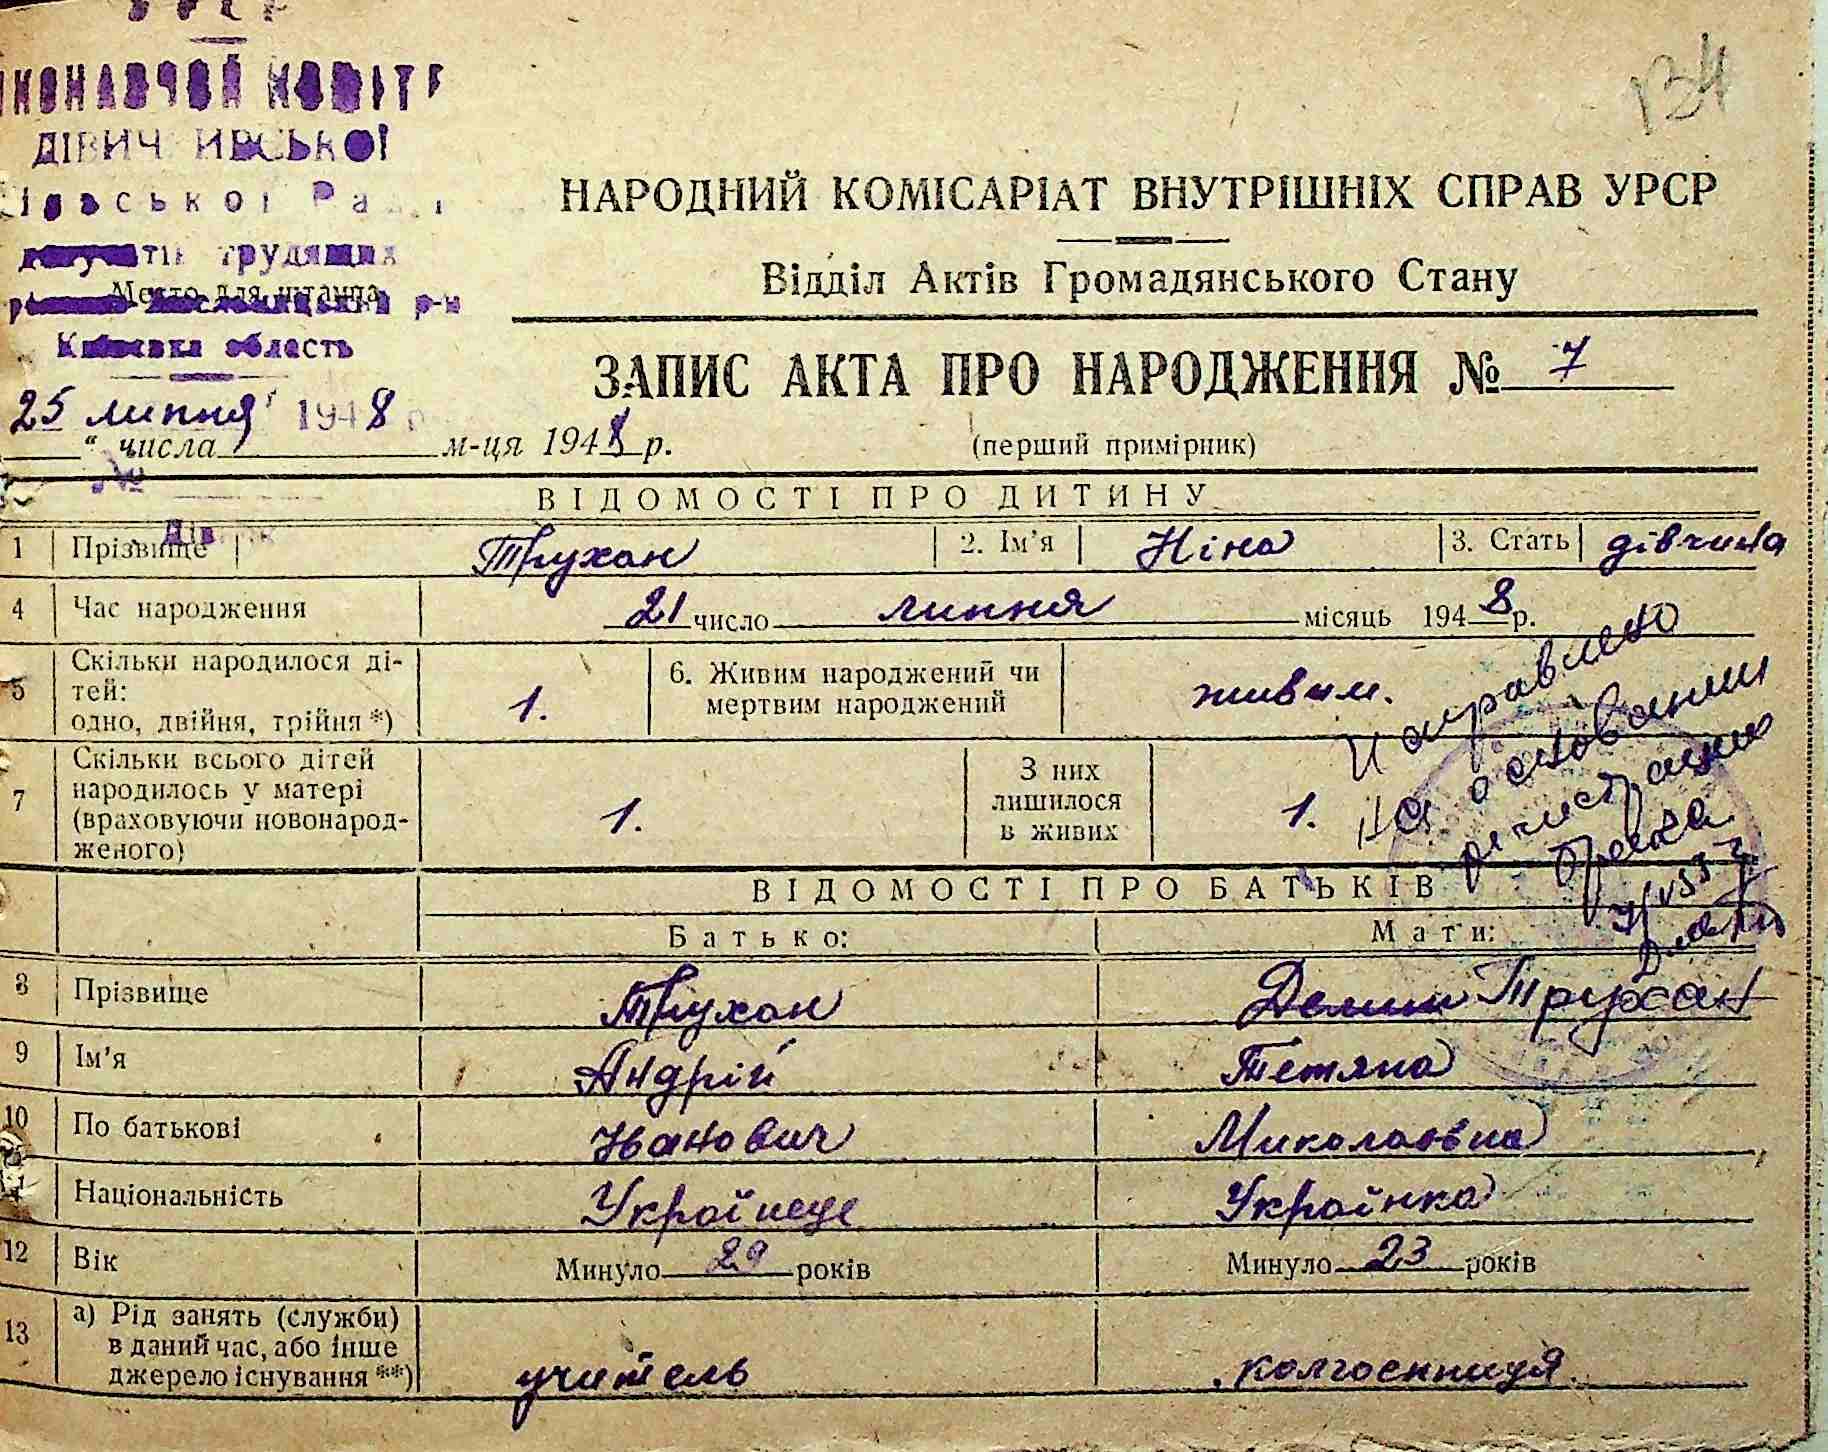 УРСР
134
ДІВИЧ
трудящих
Место для штампа
р-н
область
НАРОДНИЙ КОМІСАРІАТ ВНУТРІШНІХ СПРАВ УРСР
Відділ Актів Громадянського Стану
ЗАПИС АКТА ПРО НАРОДЖЕННЯ № 7
25 липня 1948
“ числа м-ця 1948 р.
(перший примірник)
№
ВІДОМОСТІ ПРО ДИТИНУ
1 Прізвище Трухан 2. Ім'я Ніна 3. Стать дівчина
4 Час народження 21 число липня місяць 1948 р.
5 Скільки народилося ді-
тей:
одно, двійня, трійня *) 1.
6. Живим народжений чи
мертвим народжений живим.
7 Скільки всього дітей
народилось у матері
(враховуючи новонарод-
женого) 1.
З них
лишилося
в живих 1.
Исправлено
на основании
регистрации
брака
ВІДОМОСТІ ПРО БАТЬКІВ
Батько: Мати:
8 Прізвище Трухан Трухан
9 Ім'я Андрій Тетяна
10 По батькові Іванович Миколаївна
Національність Українець Українка
12 Вік Минуло 29 років Минуло 23 років
13 а) Рід занять (служби)
в даний час, або інше
джерело існування **) учитель колгоспниця